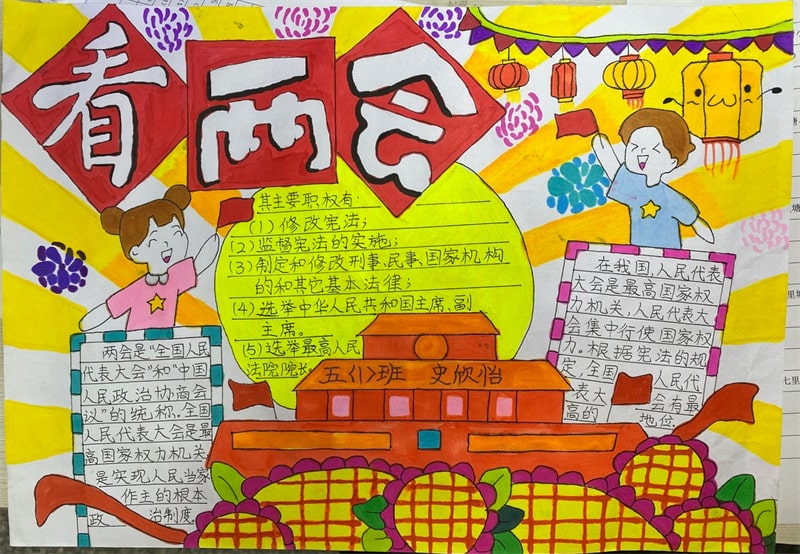 看两会
其主要职权有:
(1)修改宪法;
(2)监督宪法的实施;
(3)制定和修改刑事、民事、国家机构
的和其它基本法律;
(4)选举中华人民共和国主席、副
主席。
(5)选举最高人民
法院院长
五(1)班 史欣怡
两会是“全国人民
代表大会”和“中国
人民政治协商会
议”的统称。全国
人民代表大会是最
高国家权力机关,
是实现人民当家
作主的根本
政治制度
在我国,人民代表
大会是最高国家权
力机关,人民代表大
会集中行使国家权
力。根据宪法的规
定,全国人民代
表大会有最
高的地位